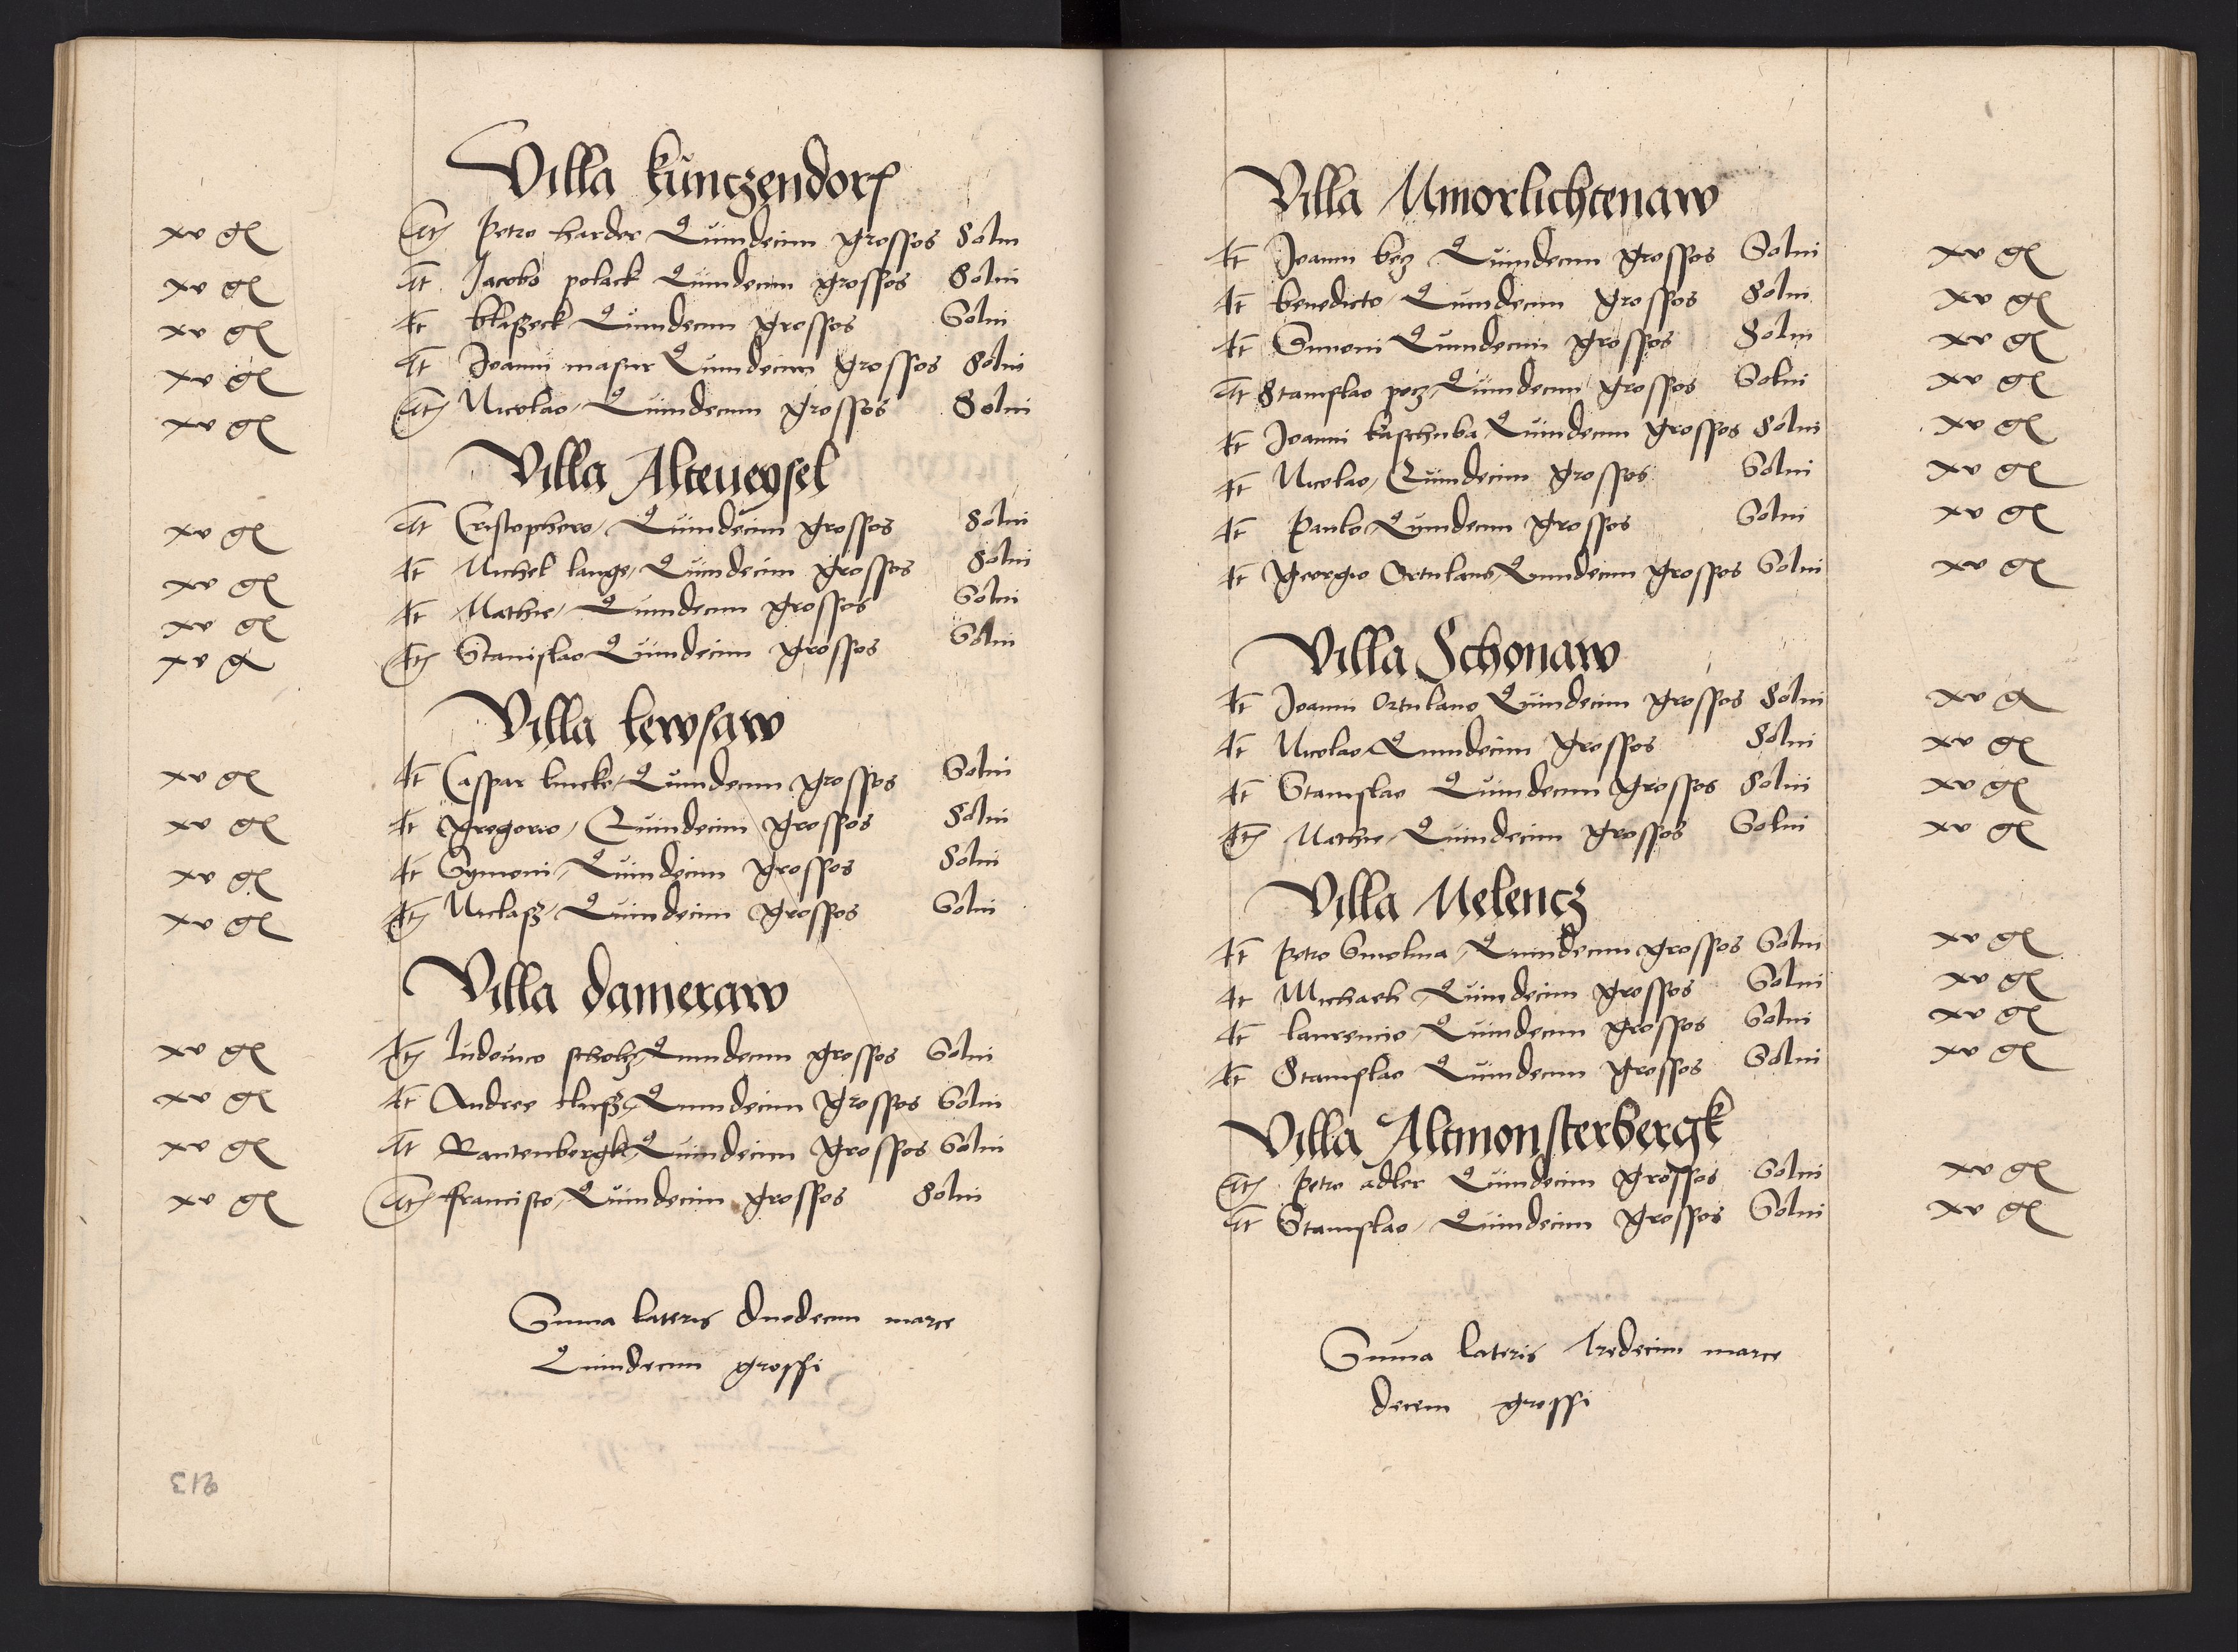 Villa kunczendorf
xv gr It Petro harder Quindecim grossos Solui
xv gr It Jacobo polack Quindecim grossos Solui
xv gr It blaszeck Quindecim grossos Solui
xv gr It Joanni masur Quindecim grossos Solui
xv gr It Nicolao Quindecim grossos Solui
Villa Alteueysel
xv gr It Cristophoro Quindecim grossos Solui
xv gr It Michel lange Quindecim grossos Solui
xv gr It Mathie Quindecim grossos Solui
xv gr It Stanislao Quindecim grossos Solui
Villa lewsaw
xv gr It Caspar lincke Quindecim grossos Solui
xv gr It gregorio Quindecim grossos Solui
xv gr It Symoni Quindecim grossos Solui
xv gr It Niclasz Quindecim grossos Solui
Villa dameraw
xv gr It ludouico scholcz Quindecim grossos Solui
xv gr It Andree Quindecim grossos Solui
xv gr It Rantenbergk Quindecim grossos Solui
xv gr It francisco Quindecim grossos Solui
Suma lateris duodecim marce
Quindecim grossi
213
Villa Mmorlichtenaw
It Joanni Quindecim grossos Solui xv gr
It benedicto Quindecim grossos Solui xv gr
It Simoni Quindecim grossos Solui xv gr
It Stanislao pecz Quindecim grossos Solui xv gr
It Joanni kaschuba Quindecim grossos Solui xv gr
It Nicolao Quindecim grossos Solui xv gr
It Paulo Quindecim grossos Solui xv gr
It georgio Ortulano Quindecim grossos Solui xv gr
Villa Schonaw
It Joanni Ortulano Quindecim grossos Solui xv gr
It Nicolao Quindecim grossos Solui xv gr
It Stanislao Quindecim grossos Solui xv gr
It Mathie Quindecim grossos Solui xv gr
Villa Melencz
It Petro Smolina Quindecim grossos Solui xv gr
It Michaeli Quindecim grossos Solui xv gr
It laurencio Quindecim grossos Solui xv gr
It Stanislao Quindecim grossos Solui xv gr
Villa Altmonsterbergk
It Petro adler Quindecim grossos Solui xv gr
It Stanislao Quindecim grossos Solui xv gr
Suma lateris Tredecim marce
decem grossi